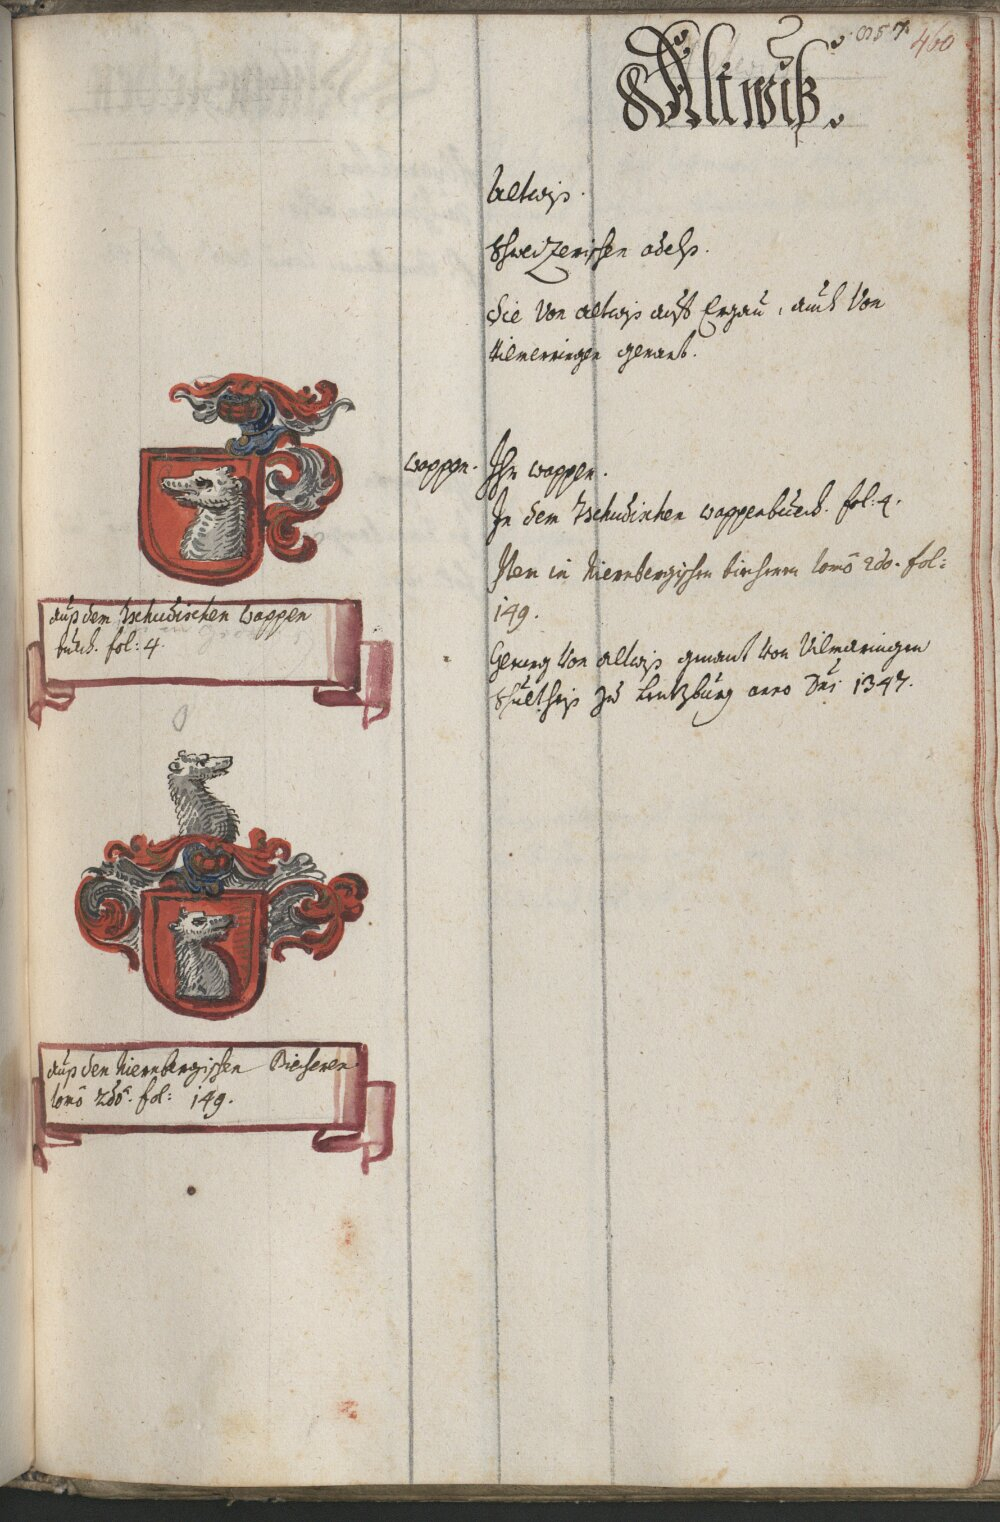 857.
460
Altwiß.
Altwiß.
Schweizerischen adelß.
Die Von altwiß auß Ergaü, auch Von
Vilmerringen genant.
wappen. Ihr wappen.
In dem Tschudischen wappenbuech. fol: 4.
Item in Niernbergischen biecheren tomo 2do. fol:
149.
Georg Von altwiß genant Von Vilmaringen
Schultheiß zu Lentzburg anno Dni 1347.
auß dem Tschudischen wappen
buech. fol: 4.
auß den Niernbergischen Biecheren
tomo 2do. fol: 149.